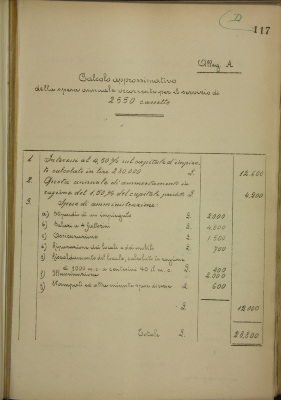 D
117
Alleg. A
Calcolo approssimativo
della spesa annuale occorrente per il servizio di
2550 cassette
1. Interessi al 4,50 % sul capitale d'impian
to calcolato in lire 280.000 £ 12,600
2. Quota annuale di ammortamento in
ragione del 1,50 % del capitale £ 4,200
3. Spese di amministrazione:
a) Stipendio di un impiegato £ 2000
b) Salari a 4 fattorini £
c) £ 1500
d) Riparazione dei locali e dei mobili £ 700
e) Riscaldamento del locale, calcolato in ragione
di 1000 m.c. a centesimi 40 il m.c. £ 400
f) Illuminazione £ 2,000
g) Stampati ed altre minute spese £ 600
£ 12,000
Totale £ 28,800